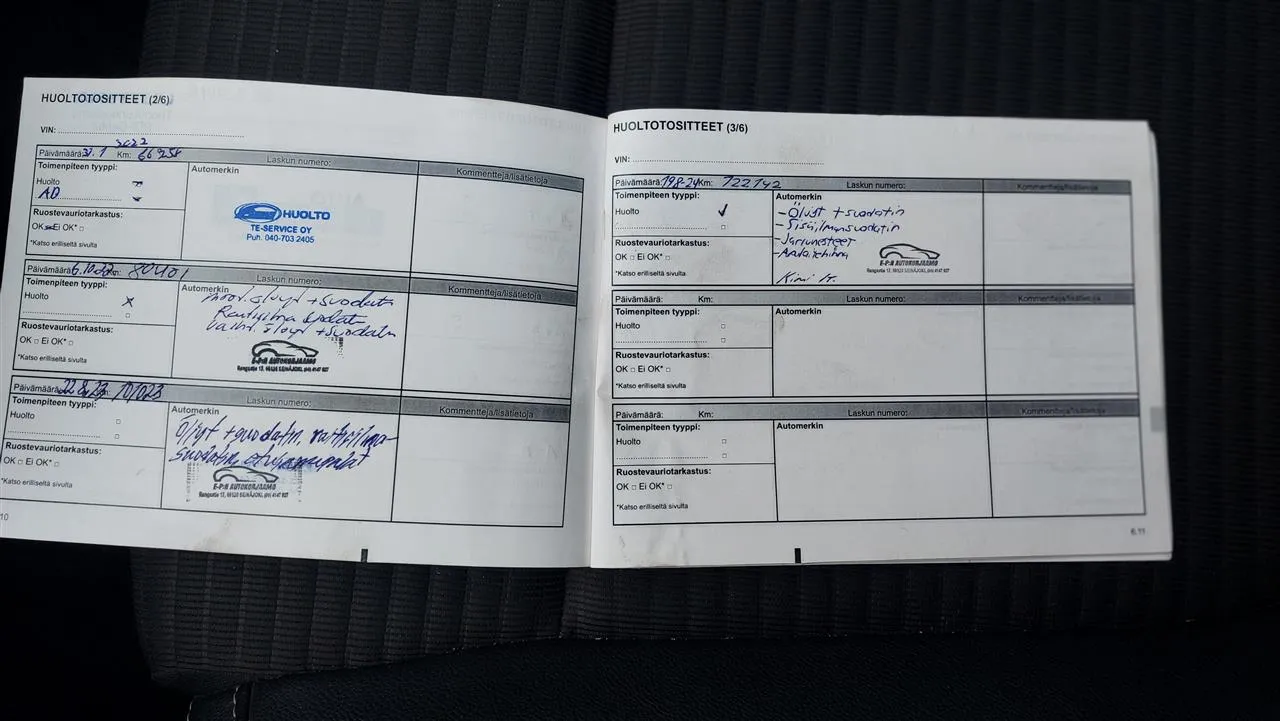 HUOLTOTOSITTEET (2/6)
VIN:
Päivämäärä: 31.1 2022 Km: 66258 Laskun numero: Kommentteja/lisätietoja
Toimenpiteen tyyppi:
Huolto
AD
Ruostevauriotarkastus:
OK Ei OK* □
*Katso erilliseltä sivulta
Automerkin
HUOLTO
TE-SERVICE OY
Puh. 040-703 2405
Päivämäärä: 6.10.22 Km: 80401 Laskun numero: Kommentteja/lisätietoja
Toimenpiteen tyyppi:
Huolto x
□
Ruostevauriotarkastus:
OK □ Ei OK* □
*Katso erilliseltä sivulta
Automerkin
+ suodatin
+ suodatin
E-P:N AUTOKORJAAMO
Rengastie 17, 60120 SEINÄJOKI, (06) 4147 927
Päivämäärä: 22.8.23 Km: 101023 Laskun numero: Kommentteja/lisätietoja
Toimenpiteen tyyppi:
Huolto □
□
Ruostevauriotarkastus:
OK □ Ei OK* □
*Katso erilliseltä sivulta
Automerkin
Öljyt + suodatin, raitisilma-
suodatin, etujarrupalat
E-P:N AUTOKORJAAMO
Rengastie 17, 60120 SEINÄJOKI, (06) 4147 927
10
HUOLTOTOSITTEET (3/6)
VIN:
Päivämäärä: 19.8-24 Km: 122142 Laskun numero: Kommentteja/lisätietoja
Toimenpiteen tyyppi:
Huolto ✓
□
Ruostevauriotarkastus:
OK □ Ei OK* □
*Katso erilliseltä sivulta
Automerkin
- Öljyt + suodatin
- Sisäilmansuodatin
- Jarrunesteet
E-P:N AUTOKORJAAMO
Rengastie 17, 60120 SEINÄJOKI, (06) 4147 927
Kimi H.
Päivämäärä: Km: Laskun numero: Kommentteja/lisätietoja
Toimenpiteen tyyppi:
Huolto □
□
Ruostevauriotarkastus:
OK □ Ei OK* □
*Katso erilliseltä sivulta
Automerkin
Päivämäärä: Km: Laskun numero: Kommentteja/lisätietoja
Toimenpiteen tyyppi:
Huolto □
□
Ruostevauriotarkastus:
OK □ Ei OK* □
*Katso erilliseltä sivulta
Automerkin
6.11